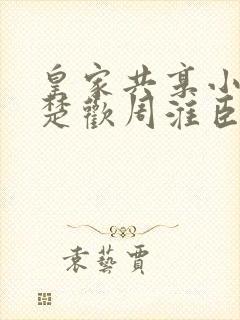 皇家共享小
楚歡周淮臣
袁藝賈